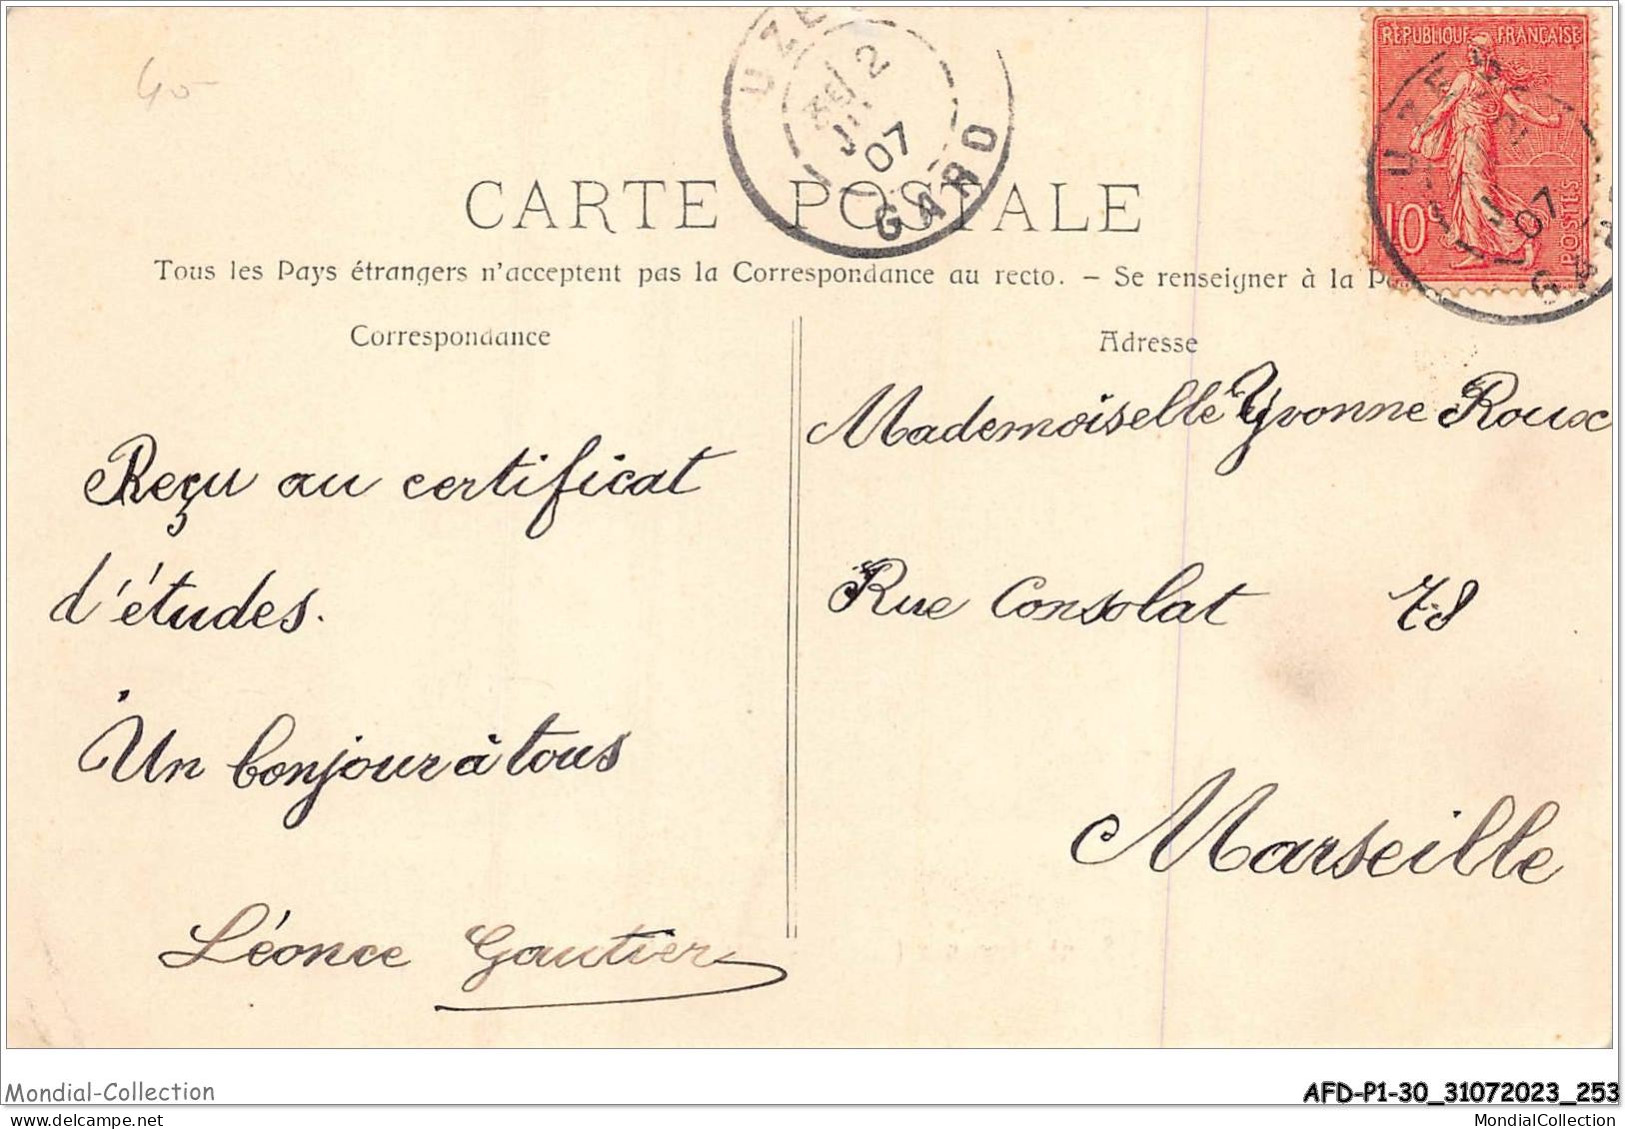 40
RÉPUBLIQUE FRANÇAISE
10c
POSTES
07
GARD
CARTE POSTALE
Tous les Pays étrangers n'acceptent pas la Correspondance au recto. – Se renseigner à la
Correspondance
Reçu au certificat
d'études.
Un bonjour à tous
Léonce Gautier
Adresse
Mademoiselle Yvonne Roux
Rue Consolat 78
Marseille
Mondial-Collection
AFD-P1-30_31072023_253
MondialCollection